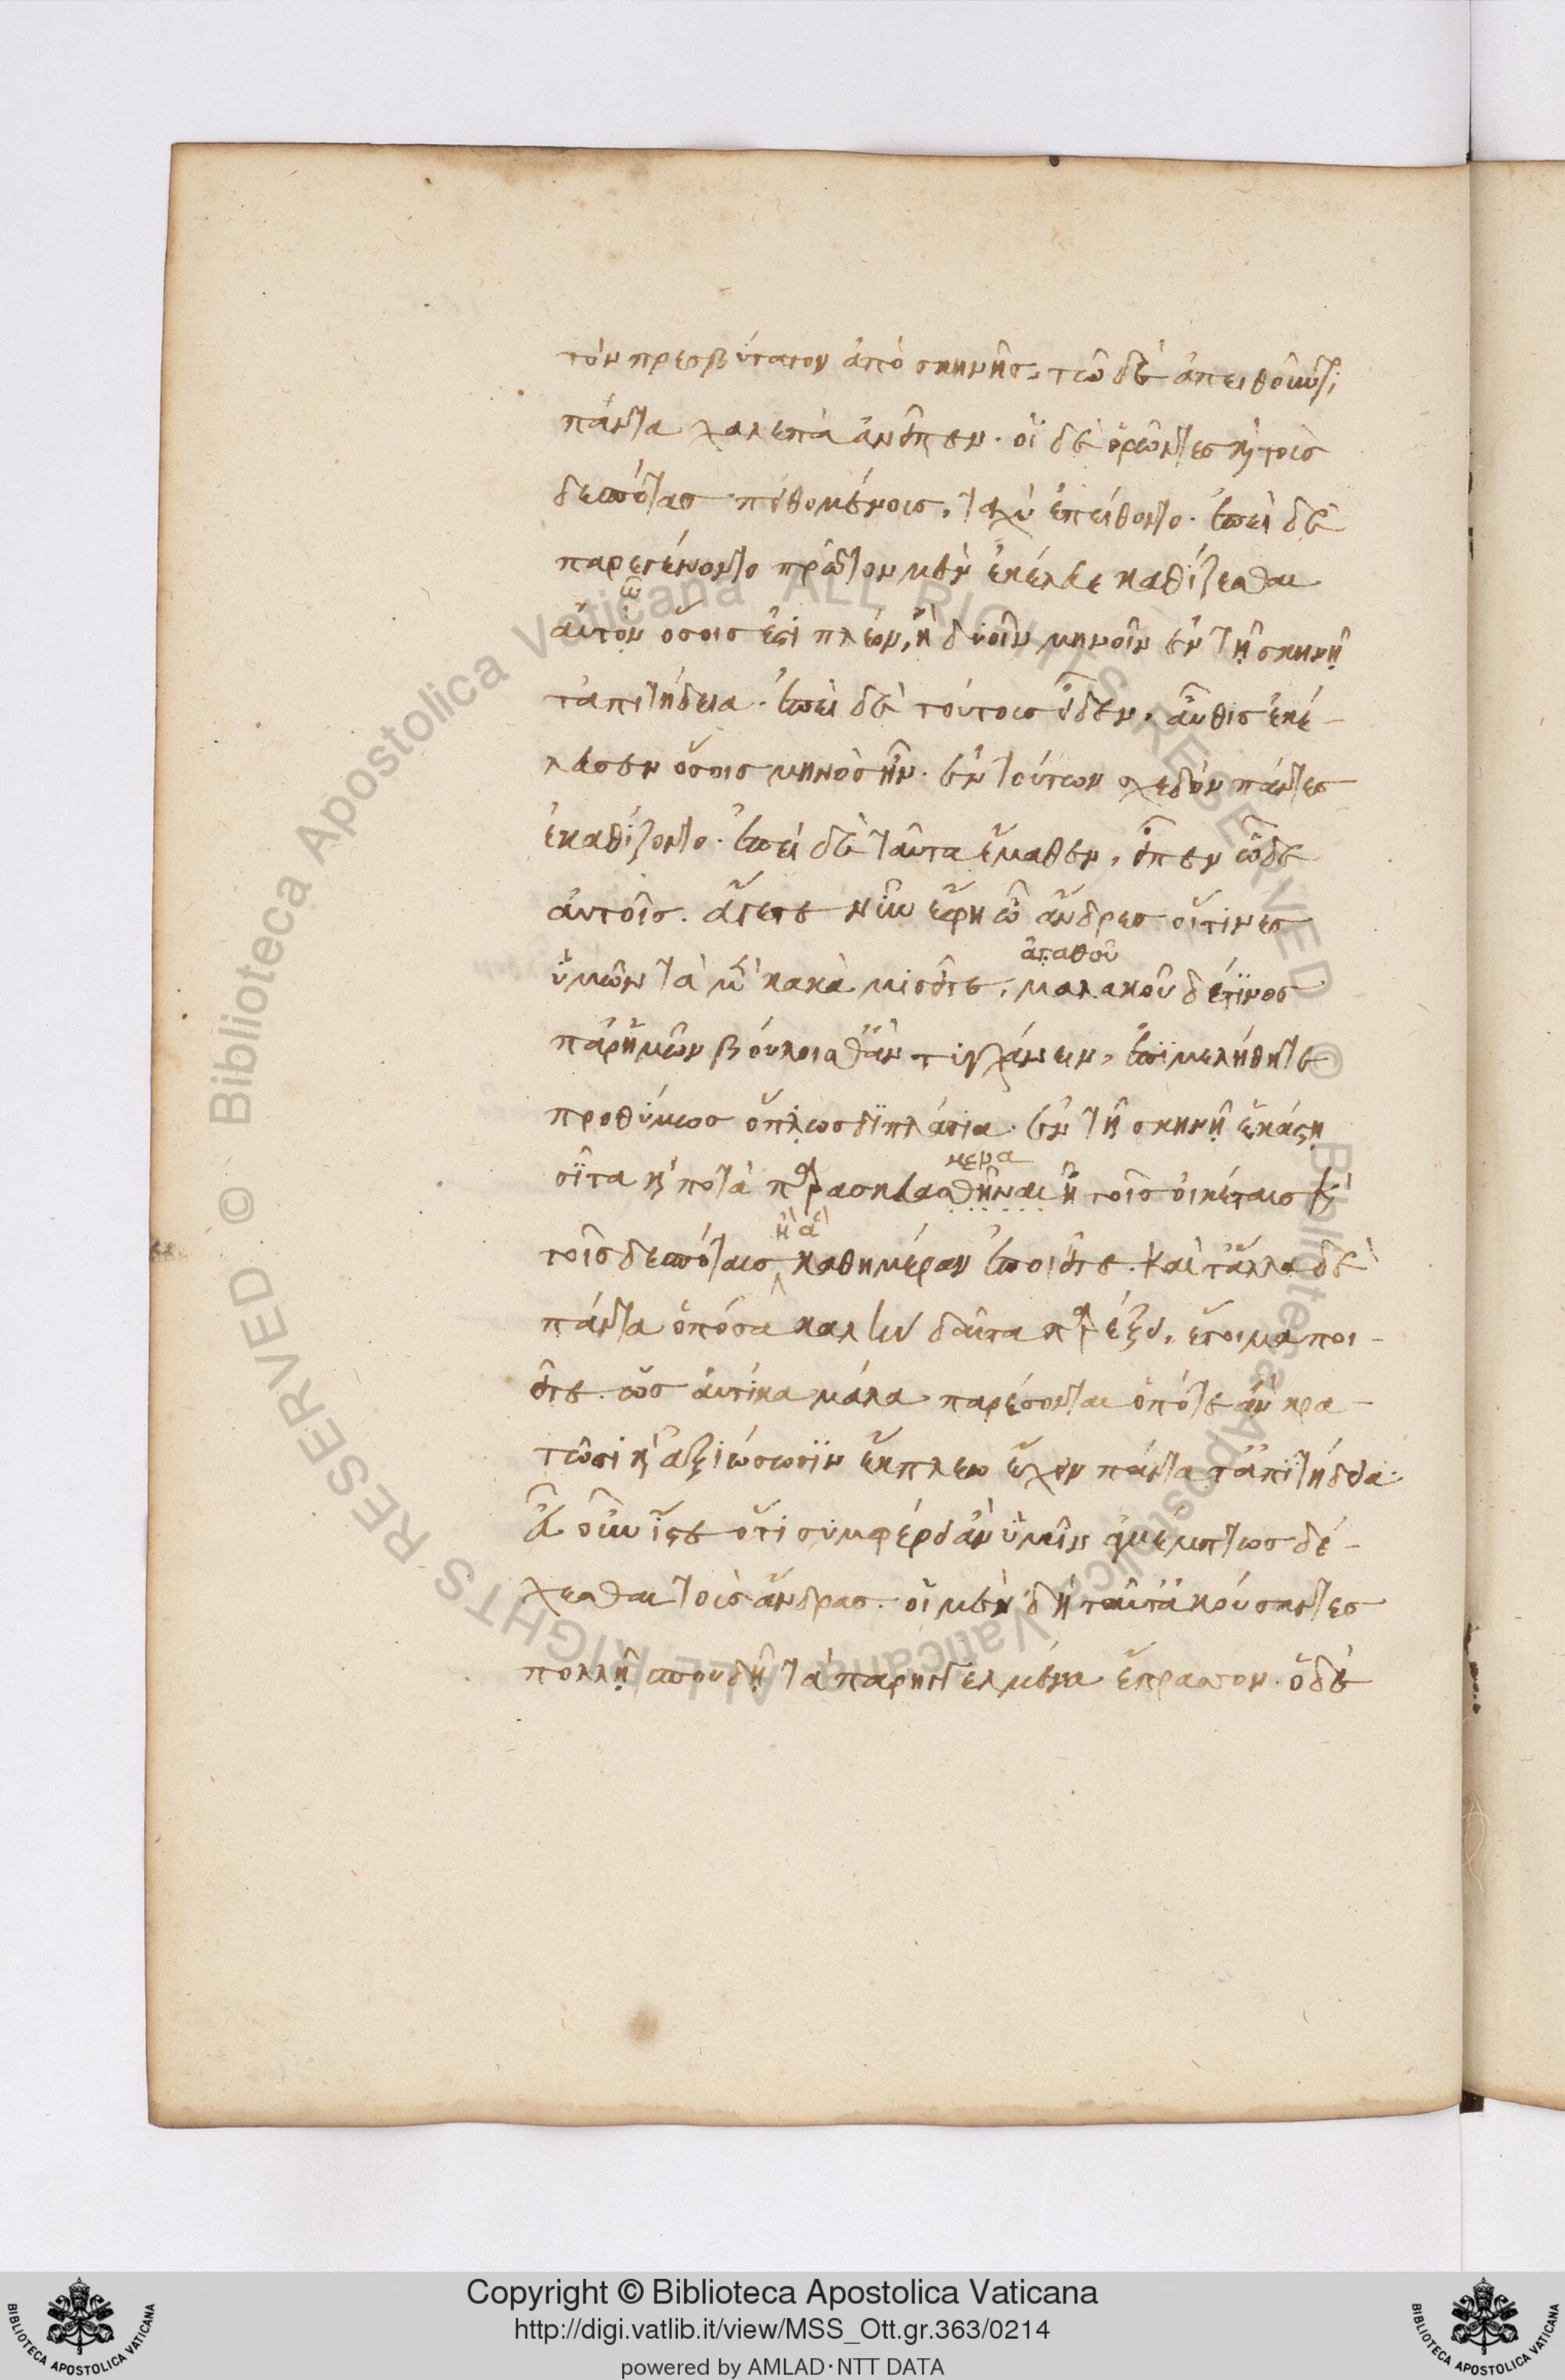 τὸν πρεσβύτατον ἀπὸ σκηνῆς. τῶ δὲ ἀπειθοῦντι
πάντα χαλεπὰ ἀνεῖπεν. οἱ δὲ ὁρῶντες καὶ τοὺς
δεσπότας πειθομένους, ταχὺ ἐπείθοντο. ἐπεὶ δὲ
παρεγένοντο πρῶτον μὲν ἐκέλευε καθίζεσθαι
ῶ
αὐτὸν ὅσοις ἐστὶ πλέον, ἢ δυοῖν μηνοῖν ἐν τῇ σκηνῇ
τἀπιτήδεια. ἐπεὶ δὲ τούτους εἶδεν, αὖθις ἐκέ-
λευσεν ὅσοις μηνὸς ἦν. ἐν τούτων σχεδὸν πάντες
ἐκαθίζοντο. ἐπεὶ δὲ ταῦτα ἔμαθεν, εἶπεν ὧδε
αὐτοῖς. ἄγετε νῦν ἔφη ὦ ἄνδρες οἵτινες
ἀγαθοῦ
ὑμῶν τὰ μὲν κακὰ μισεῖτε, μαλακοῦ δέ τινος
παρ' ἡμῶν βούλοισθ' ἂν τυγχάνειν, ἐπιμελήθητε
προθύμως ὅπως διπλάσια ἐν τῇ σκηνῇ ἑκάστῃ
μενα
σῖτα καὶ ποτὰ παρασκευασθῆναι ἢ τοῖς οἰκέταις καὶ
ἢ ἃ
τοῖς δεσπόταις καθημέραν ἐποιεῖτε. καὶ τἄλλα δὲ
πάντα ὁπόσα καλὴν δαῖτα παρέξει, ἕτοιμα ποι-
εῖτε. ὡς αὐτίκα μάλα παρέσονται ὁπότε ἂν κρα-
τῶσι καὶ ἀξιώσωσιν ἔκπλεω ἔχειν πάντα τἀπιτήδεια.
εὖ οὖν ἴστε ὅτι συμφέρει ἂν ὑμῖν ἀμέμπτως δέ-
χεσθαι τοὺς ἄνδρας. οἱ μὲν δὴ ταῦτ' ἀκούσαντες
πολλῇ σπουδῇ τὰ παρηγγελμένα ἔπραττον. ὁ δὲ
Copyright © Biblioteca Apostolica Vaticana
http://digi.vatlib.it/view/MSS_Ott.gr.363/0214
powered by AMLAD·NTT DATA